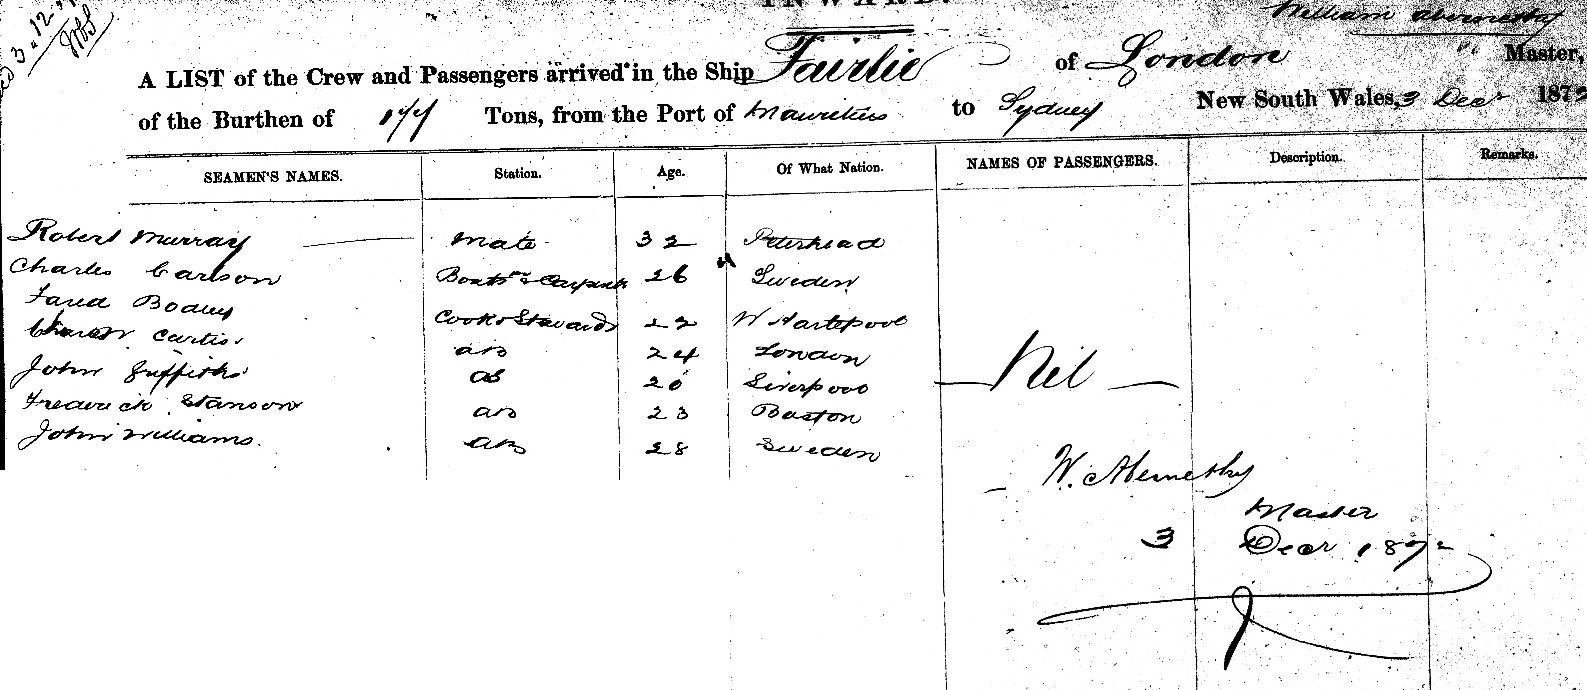 INWARD.
William Abernethy
A LIST of the Crew and Passengers arrived in the Ship Fairlie of London Master,
of the Burthen of Tons, from the Port of Mauritius to Sydney New South Wales, 3 Decr 1872
SEAMEN'S NAMES. Station. Age. Of What Nation. NAMES OF PASSENGERS. Description. Remarks.
Robert Murray Mate 32 Peterhead
Charles Carlson Boatsn & Carpentr 26 Sweden
Bodley Cook & Steward 22 W Hartepool
Curtis AB 24 London
John Griffiths AB 20 Liverpool
Frederick Stanson AB 23 Boston
John Williams. AB 28 Sweden
Nil
W. Abernethy
Master
3 Decr 1872